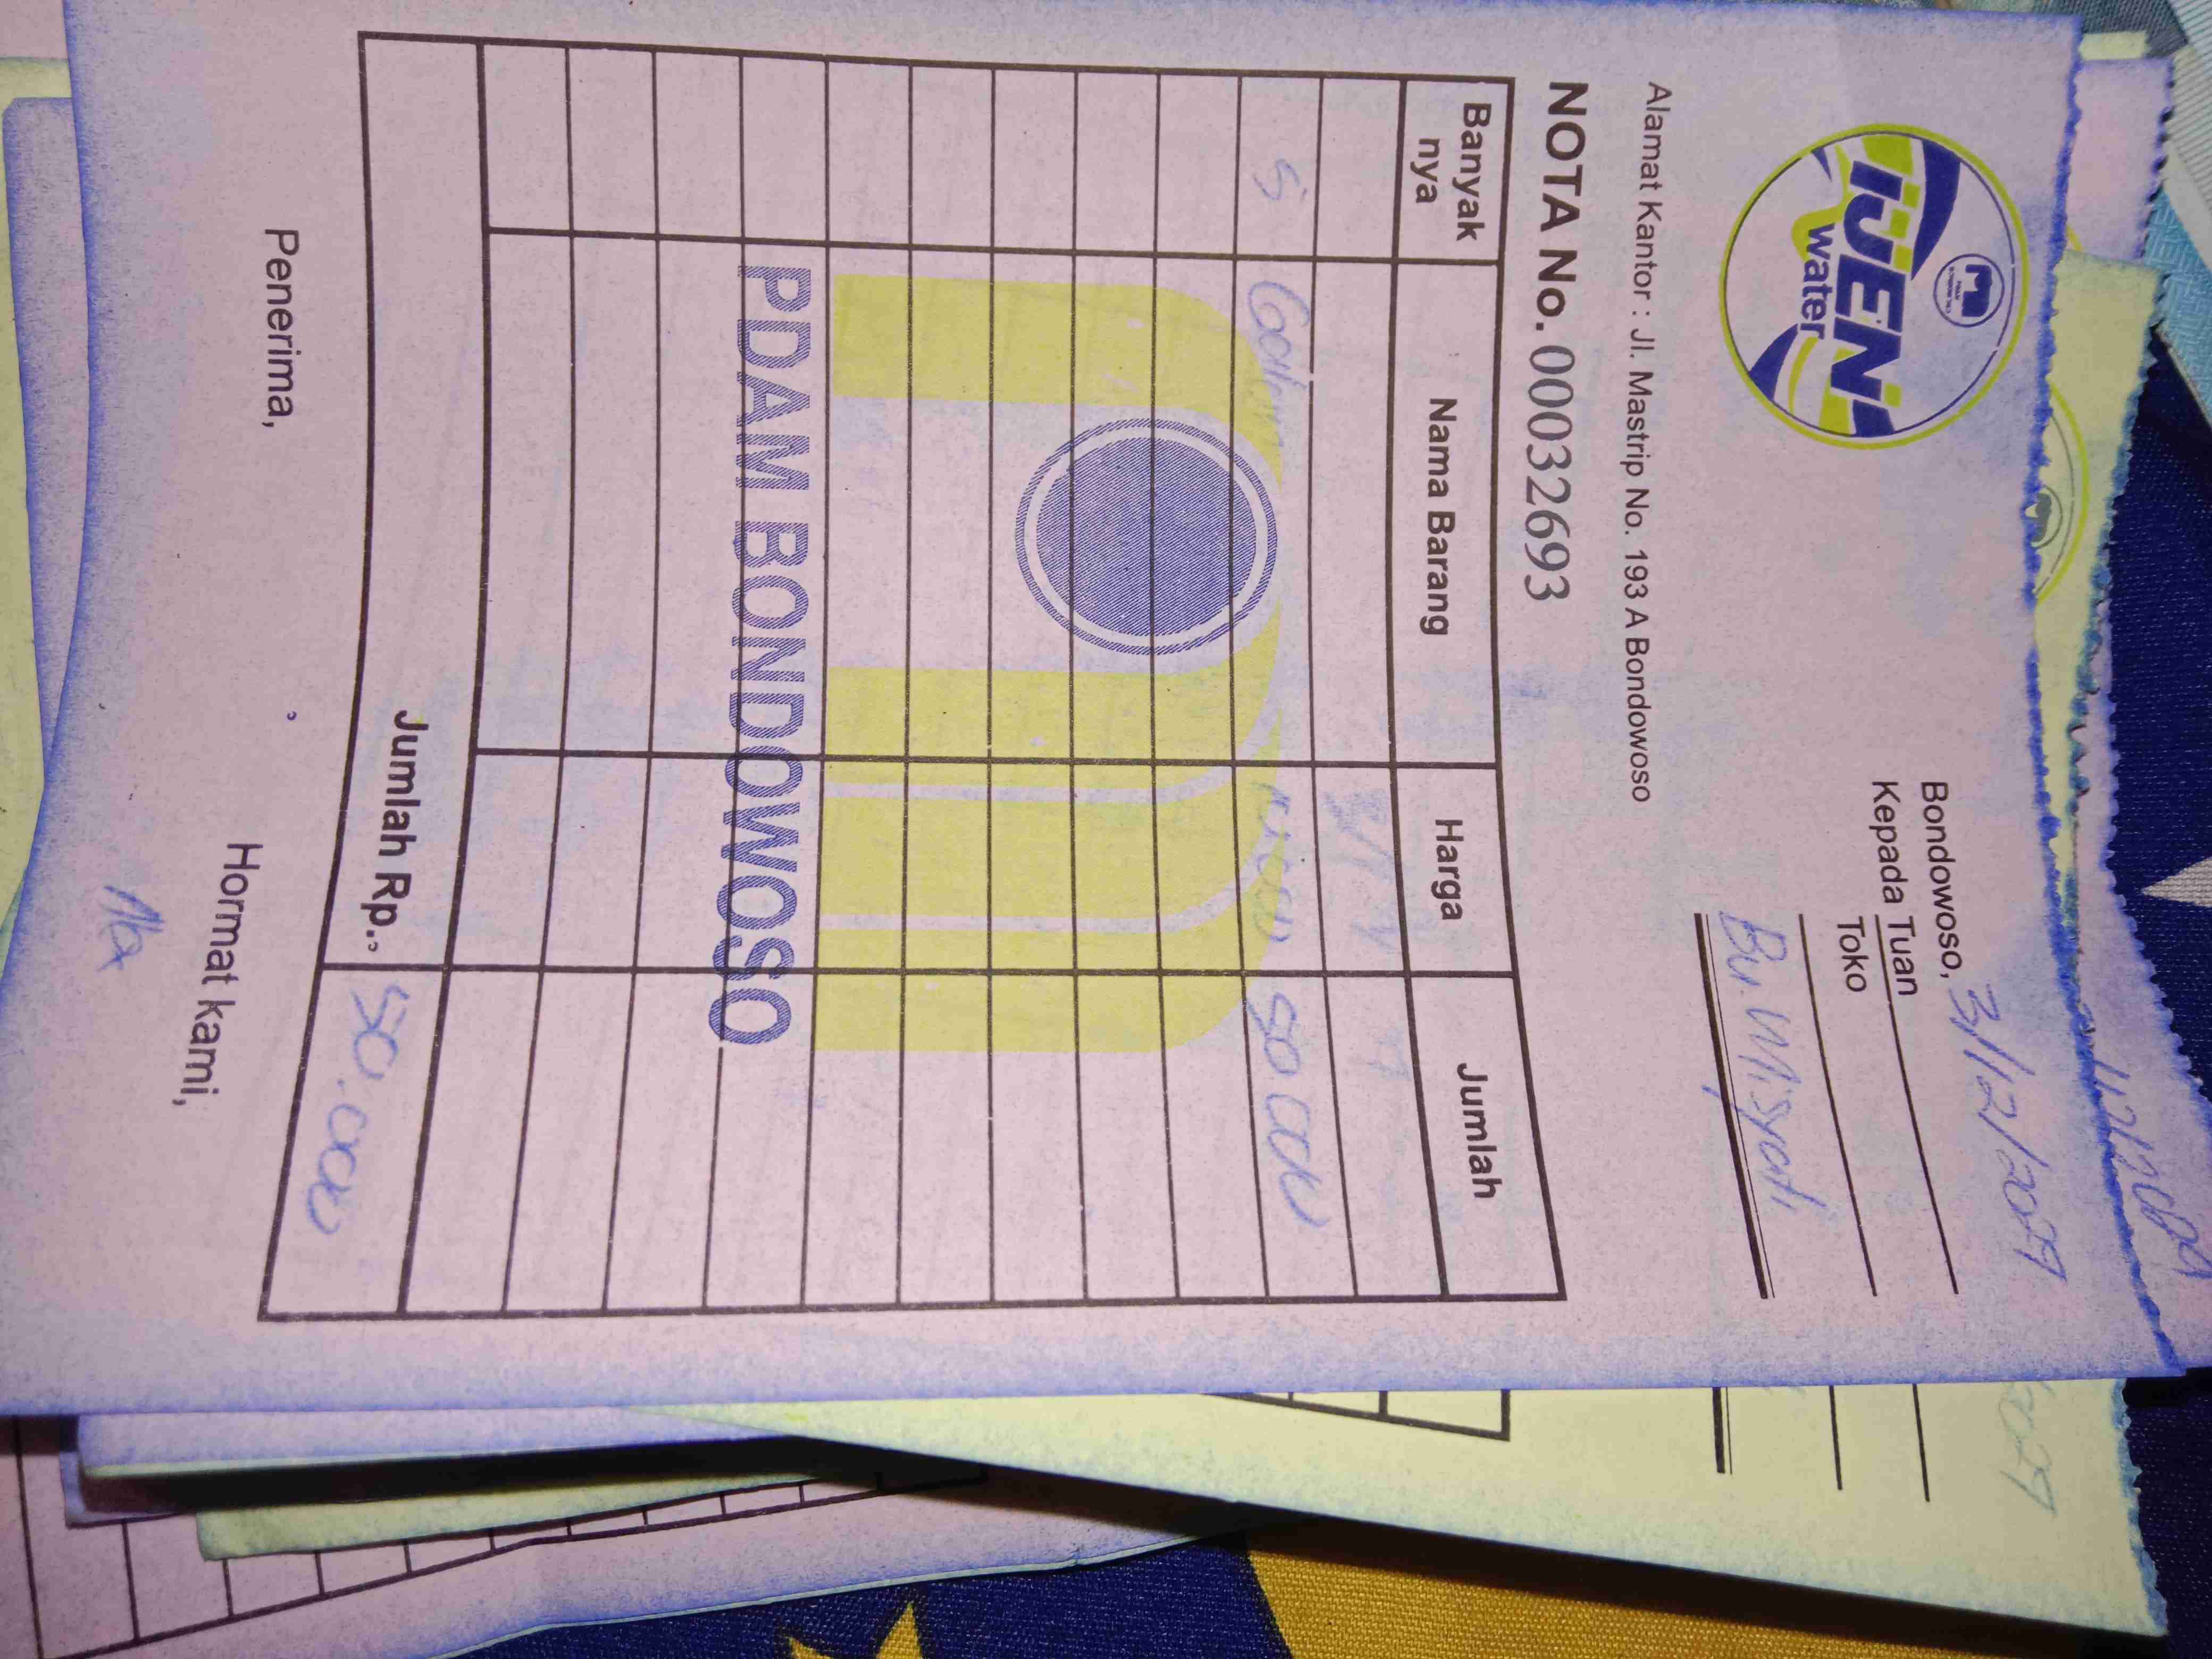 IJEN
water
Bondowoso, 3/12/2029
Kepada Tuan
Toko
Bu. Misyadi
Alamat Kantor : Jl. Mastrip No. 193 A Bondowoso
NOTA No. 00032693
Banyak nya Nama Barang Harga Jumlah
5 Galon 50.000
PDAM BONDOWOSO
Jumlah Rp., 50.000
Penerima, Hormat kami,